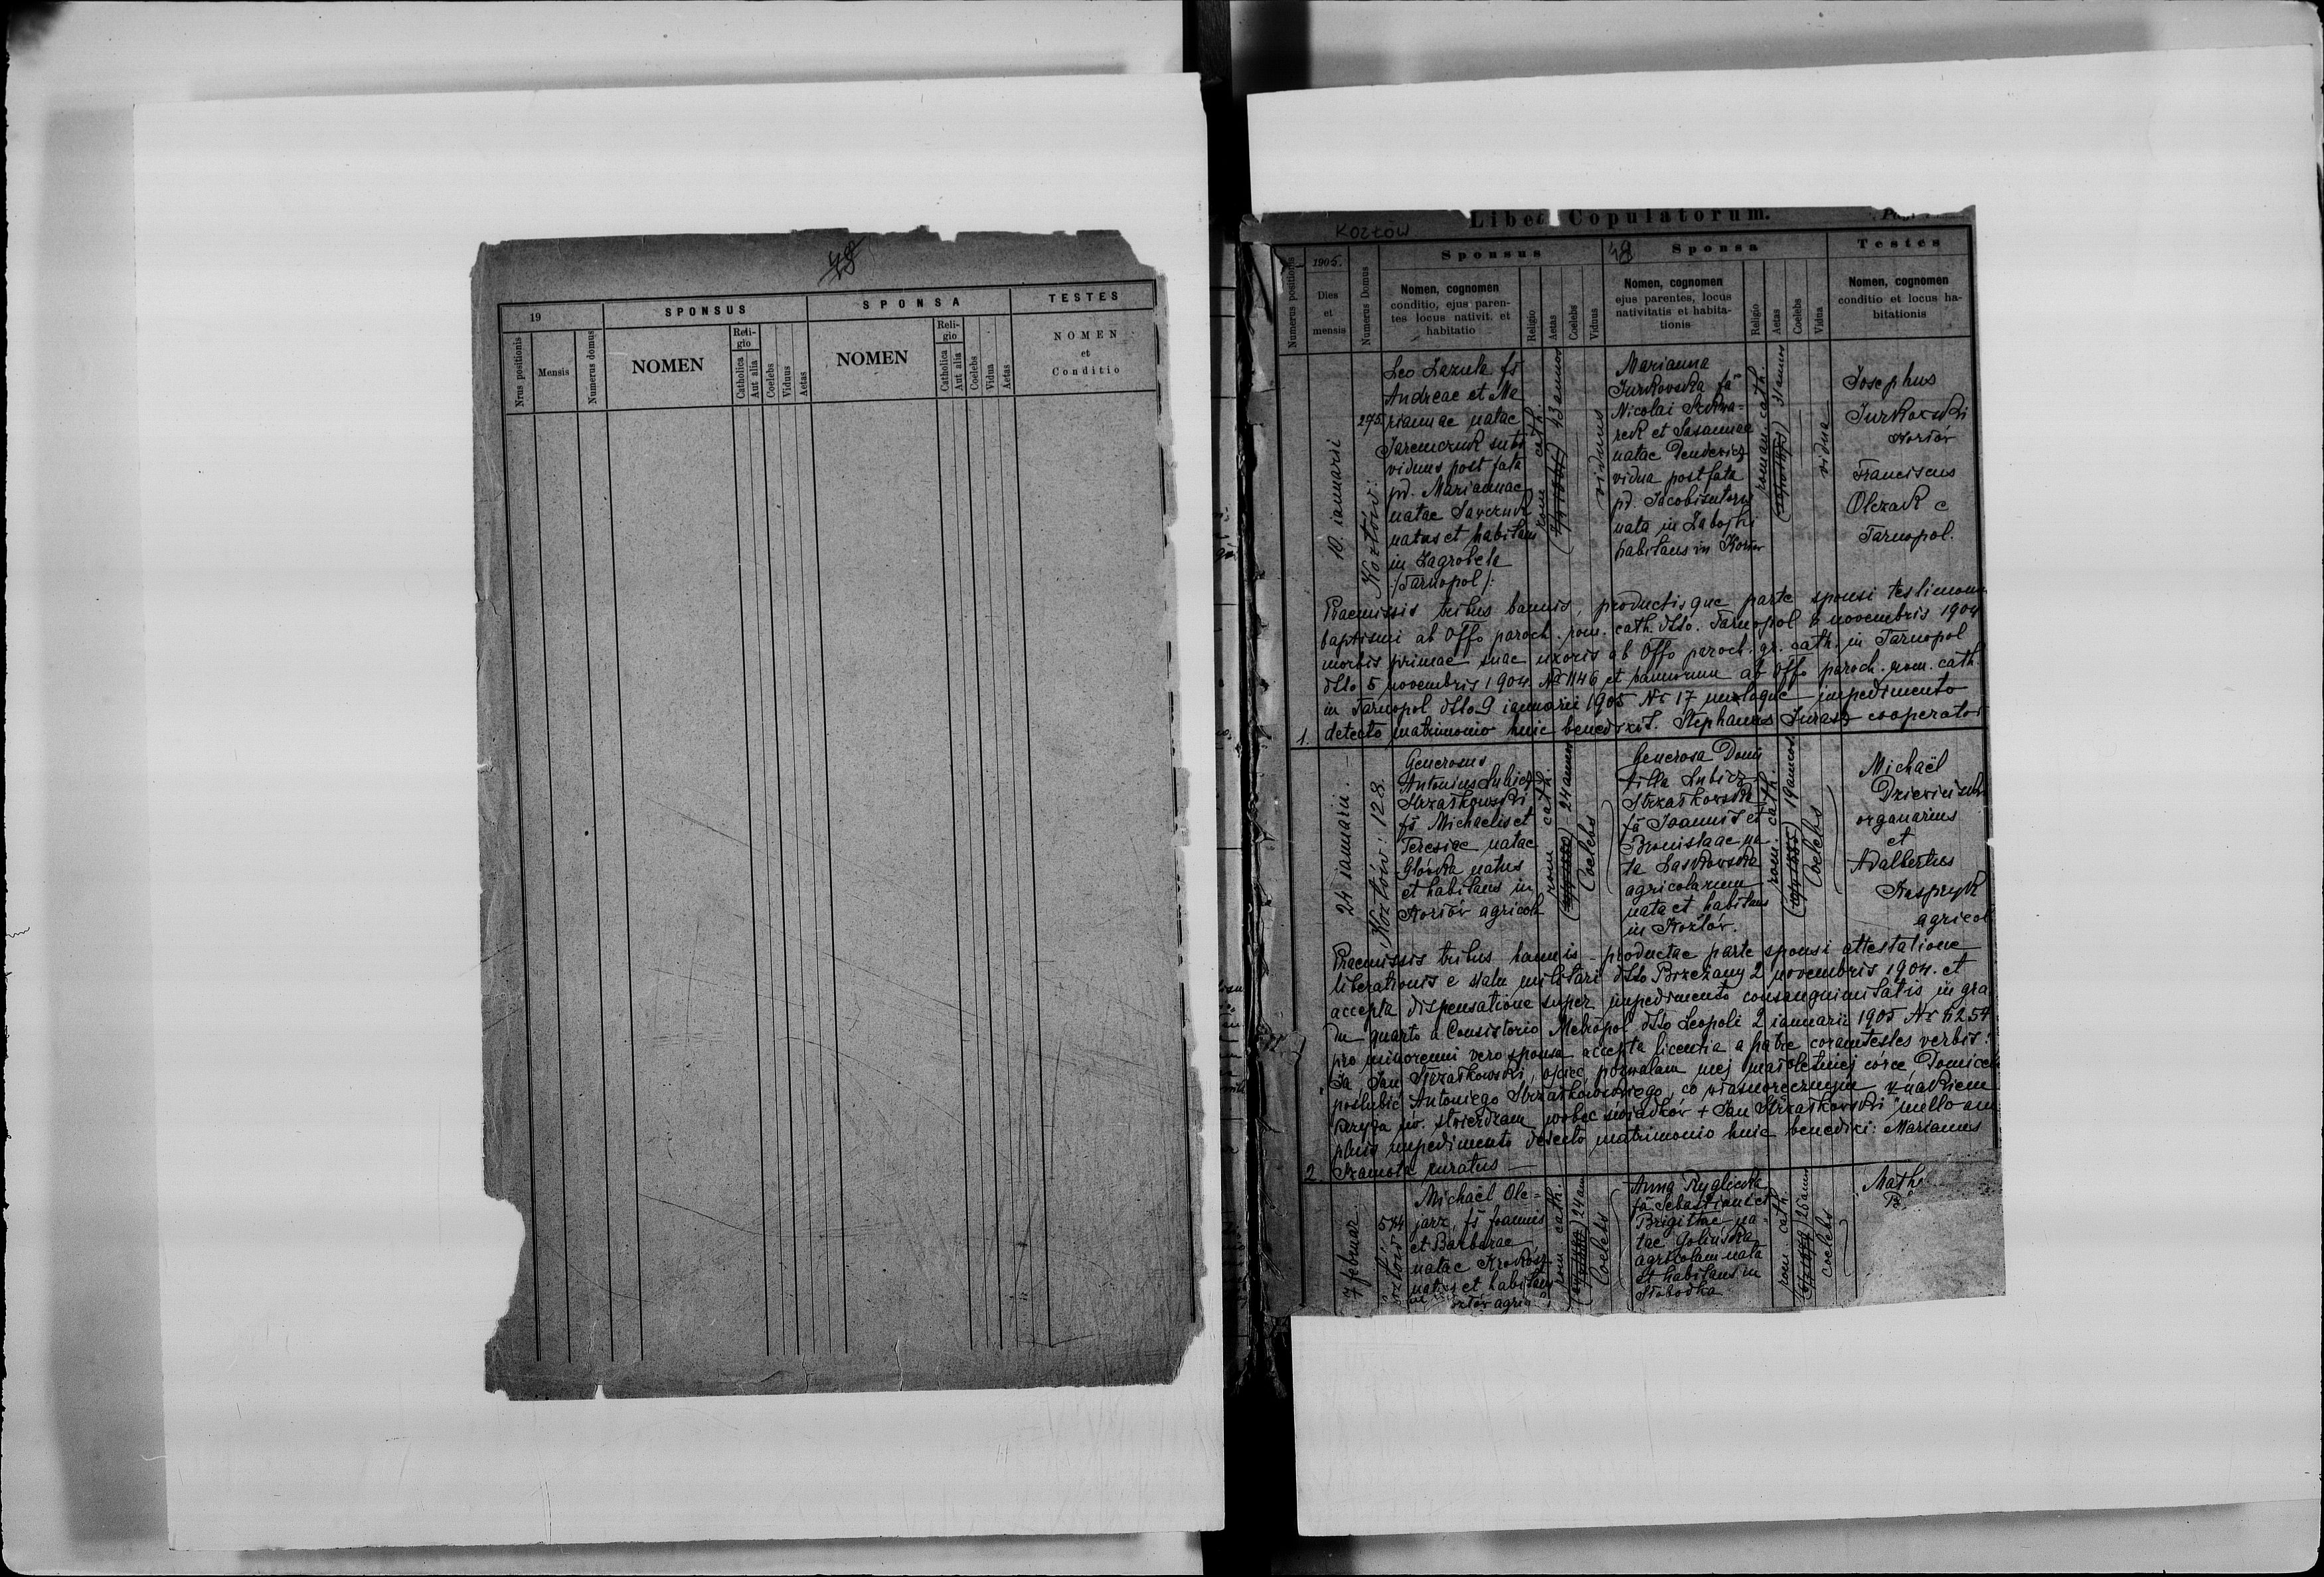 48
19
SPONSUS
SPONSA
TESTES
Nrus positionis
Mensis
Numerus domus
NOMEN
Reli-
gio
Catholica
Aut alia
Coelebs
Viduus
Aetas
NOMEN
Reli-
gio
Catholica
Aut alia
Coelebs
Vidua
Aetas
NOMEN
et
Conditio
Liber Copulatorum.
Kozłów
48
Numerus positionis
1905.
Dies
et
mensis
Numerus Domus
Sponsus
Nomen, cognomen
conditio, ejus paren-
tes locus nativit. et
habitatio
Religio
Aetas
Coelebs
Viduus
Sponsa
Nomen, cognomen
ejus parentes, locus
nativitatis et habita-
tionis
Religio
Aetas
Coelebs
Vidua
Testes
Nomen, cognomen
conditio et locus ha-
bitationis
1.
10. ianuarii
Kozłów:
275.
Leo Lazula fs
Andreae et Ma
riannae natae
Jaremczuk
viduus post fata
pd. Mariannae
natae Sawczuk
natus et habitans
in Zagrobela
/:Tarnopol/:
rom cath.
43 annor
viduus
Marianna
Jurkowska fa
Nicolai
rek et Susannae
natae
vidua post fata
pd. Jacobi
nata in
habitans in Kozłów
roman. cath.
31 annor
vidua
Josephus
Jurkowski
Kozłów
Franciscus
Olczak e
Tarnopol.
Praemissis tribus bannis, productisque parte sponsi testimonio
baptismi ab Offo paroch. rom. cath. dtto. Tarnopol 6 novembris 1904
mortis primae suae uxoris ab Offo paroch. gr. cath. in Tarnopol
dtto 5 novembris 1904 Nr 1146 et bannorum ab Offo paroch. rom. cath.
in Tarnopol dtto 9 ianuarii 1905 Nr 17 nulloque impedimento
detecto matrimonio huic benedixit. Stephanus Jurasz cooperator
2.
24 ianuarii.
Kozłów: 128.
Generosus
Antonius Lubicz
Strzałkowski
fs Michaelis et
Teresiae natae
Główka natus
et habitans in
Kozłów agricola
rom cath.
24 annor
Coelebs
Generosa Domi
tilla Lubicz
Strzałkowska
fa Joannis et
Bronislaae na
ta Laskowska
agricolarum
nata et habitans
in Kozłów.
rom. cath.
19 annor.
Coelebs
Michaël
organarius
et
Adalbertus
Kasprzyk
agricol
Praemissis tribus bannis productae parte sponsi attestatione
liberationis e statu militari dtto Brzezany 2 novembris 1904. et
accepta dispensatione super impedimento consanguinitatis in gra
du quarto a Consistorio Metropol dtto Leopoli 2 ianuarii 1905 Nr 6254
pro minorenni vero sponsa accepta licentia a patre coram testes verbis:
"Ja Jan Strzałkowski, ojciec pozwalam mej małoletniej córce Domiceli
poślubić Antoniego Strzałkowskiego, co własnoręcznym znakiem
krzyża św. stwierdzam wobec świadków + Jan Strzałkowski" nullo am
plius impedimento detecto matrimonio huic benedixi: Marianus
Szamota curatus
7 februar.
584
Michaël Ole=
jarz, fs Joannis
et Barbarae
natae
natus et habitans
rom. cath.
24 ann
Coelebs
Anna Ryglicka
fa Sebastiani et
Brigittae na
tae Golińska
agricolarum nata
et habitans in
Słobodka
rom. cath.
26 annor
coelebs
Math
B